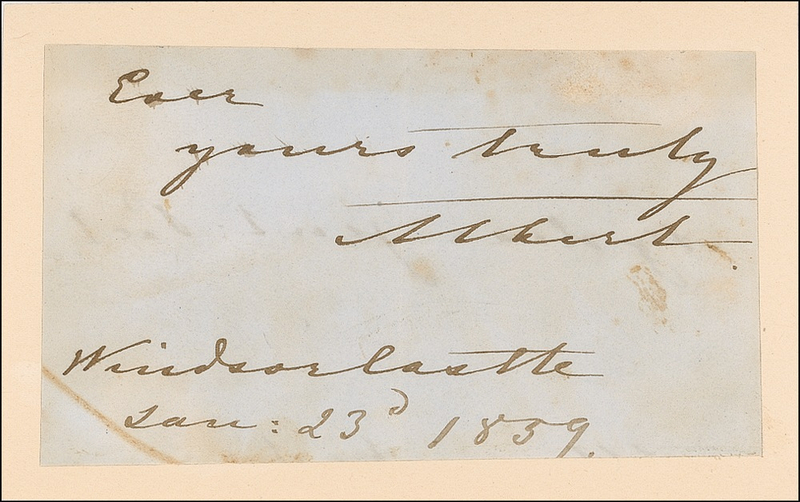 Ever
yours truly
Albert.
Windsor Castle
Jan: 23d 1859.